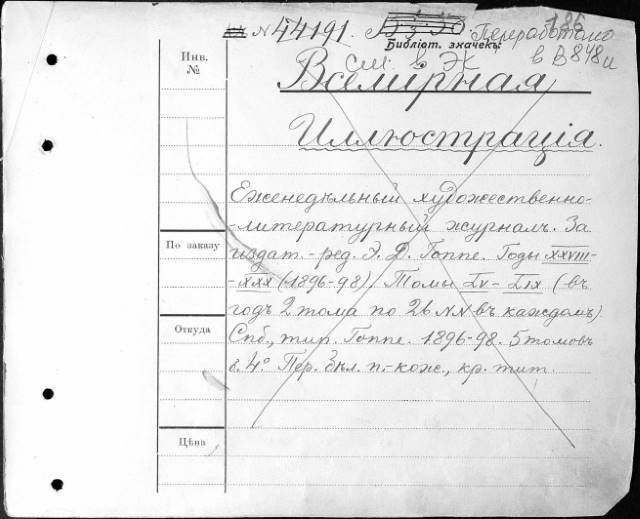 № 44191. 186
Переработано
Библіот. значекъ:
см. в Ж
в В 848 и
Инв.
№
Всемірная
Иллюстрація.
Еженедѣльный художественно-
-литературный журналъ. За
издат.-ред. Э. Д. Гоппе. Годы XXVIII-
-XXX (1896-98). Томы LV-LIX (въ
годъ 2 тома по 26 NN въ каждомъ)
Спб., тип. Гоппе. 1896-98. 5 томовъ
в. 4° Пер. Экл. п.-кож., кр. тит.
По заказу
Откуда
Цѣна